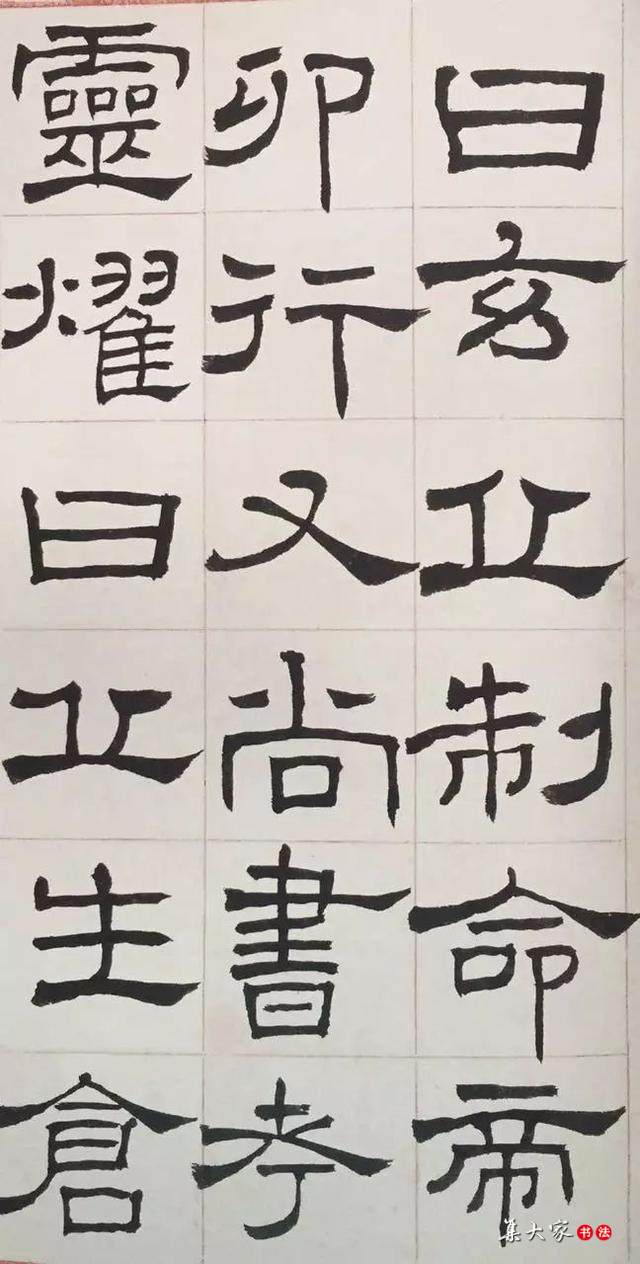 曰玄丘制命帝
卯行又尚書考
靈燿曰丘生倉
集大家 书法